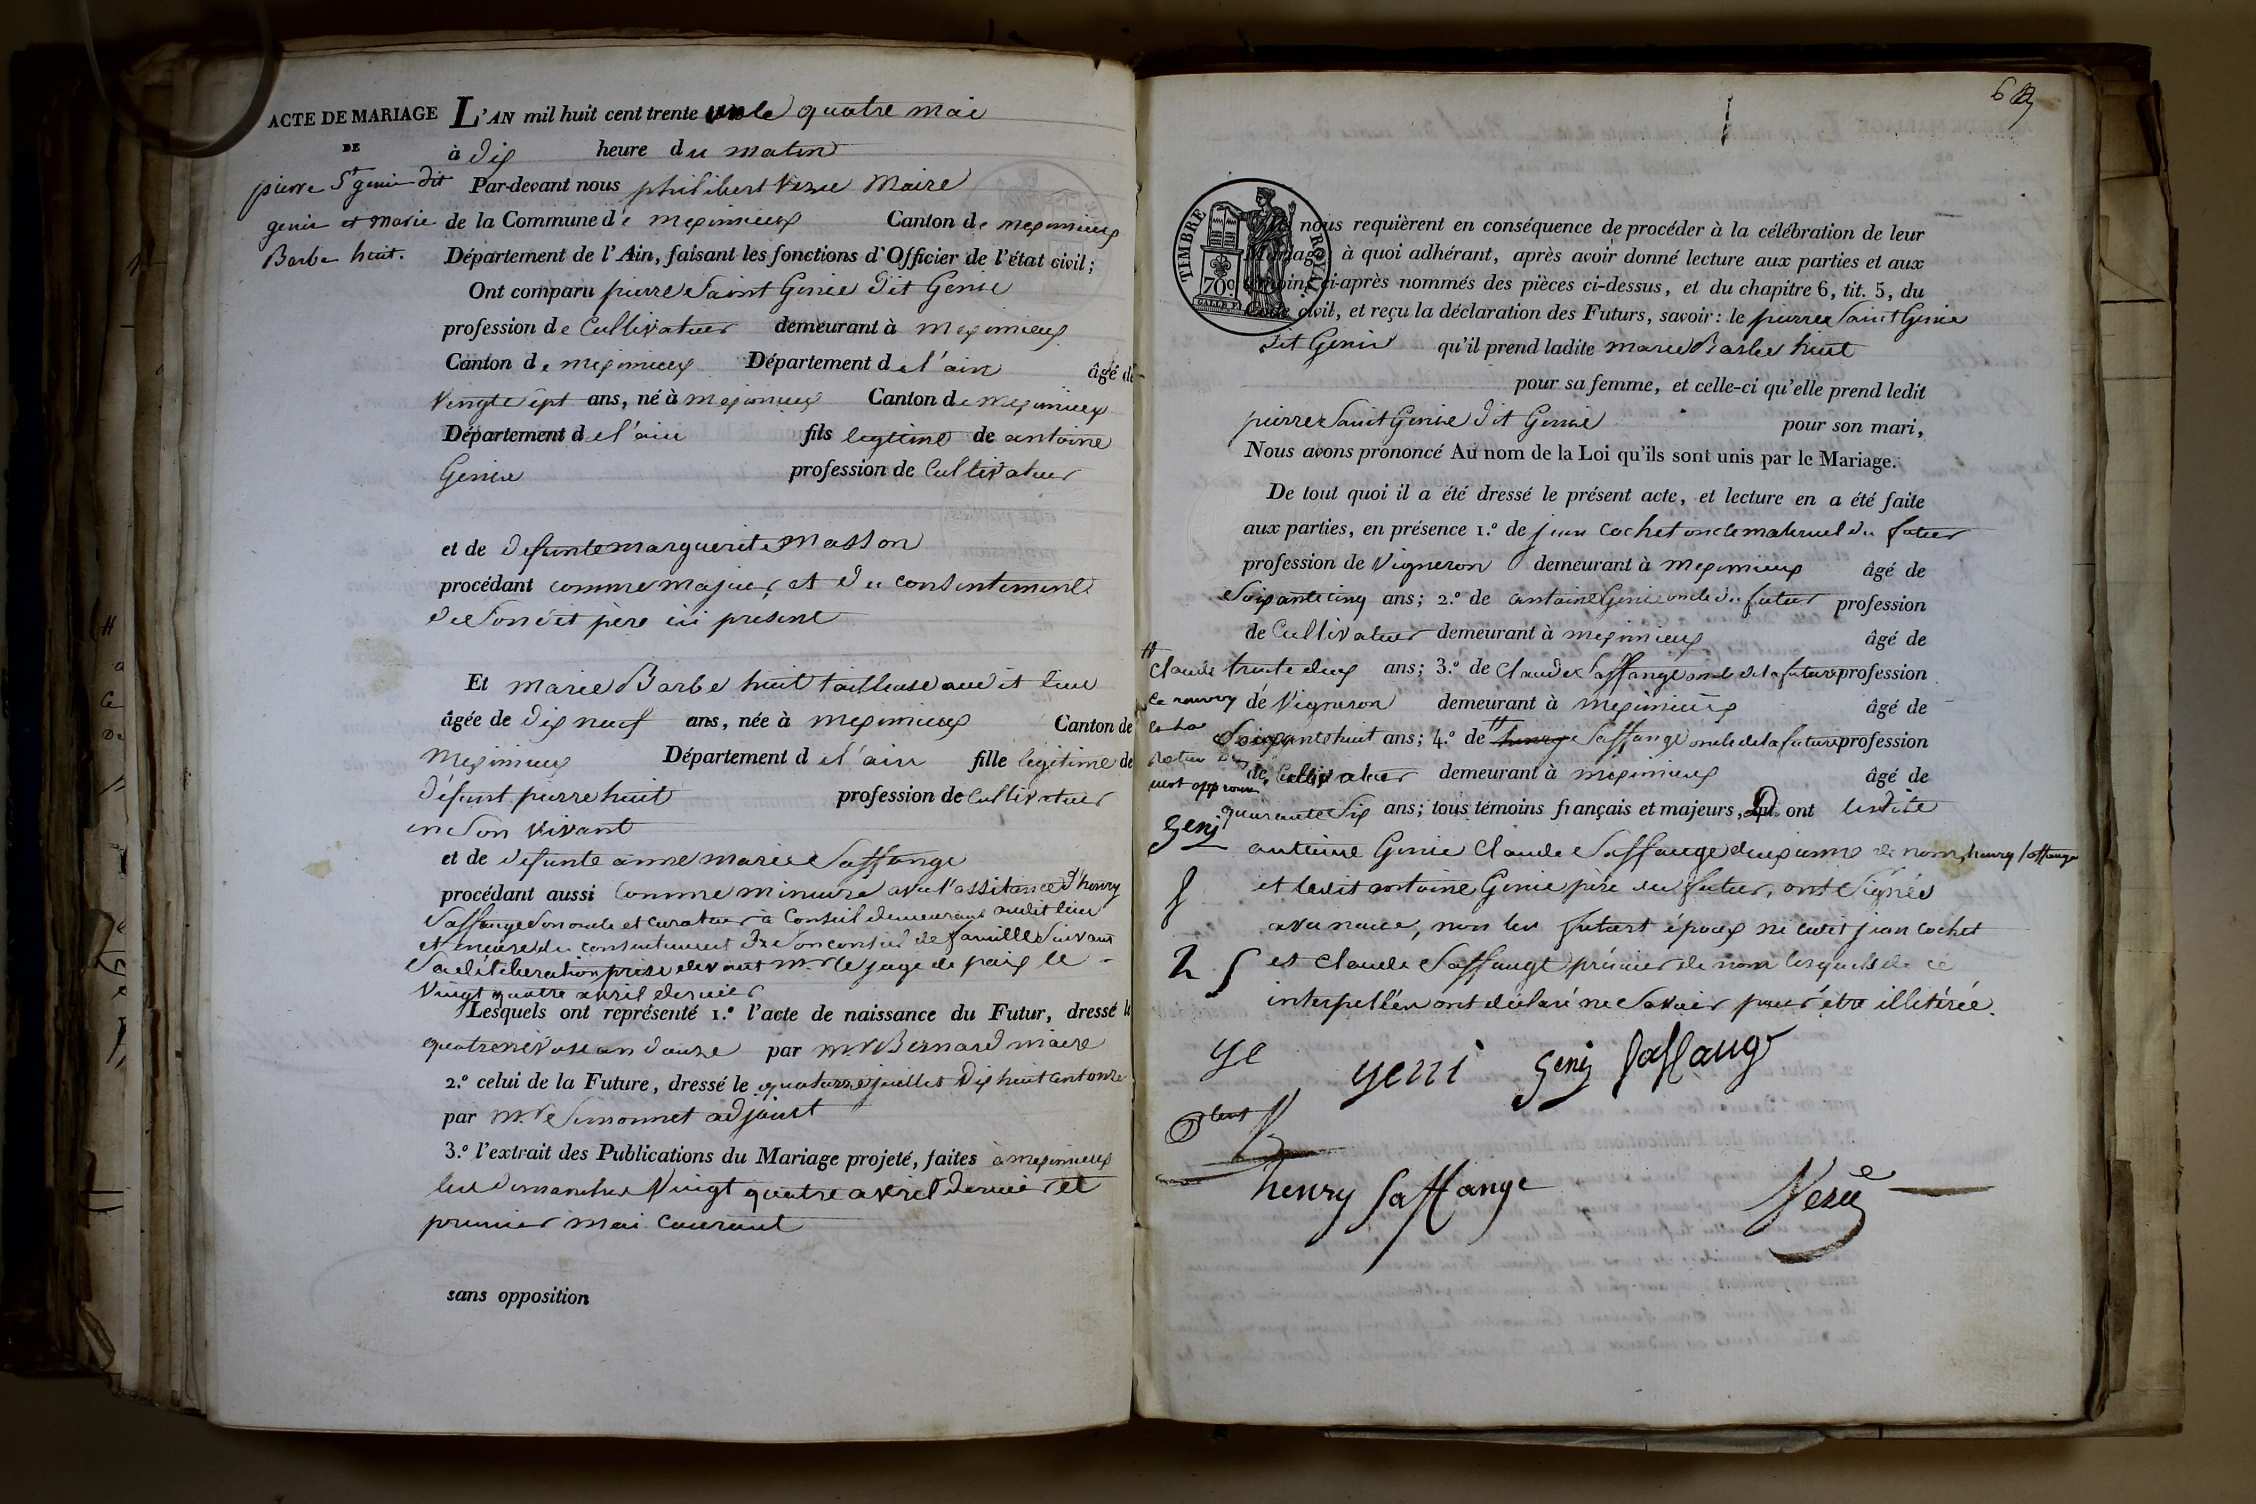 ACTE DE MARIAGE
DE
pierre St genie dit
genie et marie
Barbe huit.
L'AN mil huit cent trente un le quatre mai
à dix heure du matin
Par-devant nous philibert Vezu Maire
de la Commune de meximieux Canton de meximieux
Département de l'Ain, faisant les fonctions d'Officier de l'état civil;
Ont comparu pierre Saint Genie dit Genie
profession de Cultivateur demeurant à meximieux
Canton de meximieux Département de l'ain âgé de
Vingt sept ans, né à meximieux Canton de meximieux
Département de l'ain fils legitime de antoine
Genie profession de Cultivateur
et de defunte marguerite Masson
procédant comme majeur, et du consentement
de Son dit père ici présent
Et marie Barbe huit tailleuse audit lieu
âgée de dix neuf ans, née à meximieux Canton de
meximieux Département de l'ain fille legitime de
défunt pierre huit profession de Cultivateur
en Son vivant
et de defunte anne marie Saffange
procédant aussi Comme mineure avec l'assitance d'henry
Saffange Son oncle et curateur à Conseil demeurant audit lieu
et encore du consentement de Son conseil de famille Suivant
Sa déliberation prise devant mr le juge de paix le
Vingt quatre avril dernier
Lesquels ont représenté 1.º l'acte de naissance du Futur, dressé le
quatre nivose an douze par mr Bernard maire
2.º celui de la Future, dressé le quatorze juillet dix huit cent onze
par mr Simonnet adjoint
3.º l'extrait des Publications du Mariage projeté, faites à meximieux
les dimanches Vingt quatre avril dernier et
premier mai Courant
sans opposition
TIMBRE ROYAL
70c
nous requièrent en conséquence de procéder à la célébration de leur
Mariage à quoi adhérant, après avoir donné lecture aux parties et aux
témoins ci-après nommés des pièces ci-dessus, et du chapitre 6, tit. 5, du
Code civil, et reçu la déclaration des Futurs, savoir: le pierre Saint Genie
dit Genie qu'il prend ladite marie Barbe huit
pour sa femme, et celle-ci qu'elle prend ledit
pierre Saint Genie dit Genie pour son mari,
Nous avons prononcé Au nom de la Loi qu'ils sont unis par le Mariage.
De tout quoi il a été dressé le présent acte, et lecture en a été faite
aux parties, en présence 1.º de jean Cochet oncle maternel du futur
profession de Vigneron demeurant à meximieux âgé de
Soixante cinq ans; 2.º de antoine Genie oncle du futur profession
de Cultivateur demeurant à meximieux âgé de
trente deux ans; 3.º de Claude Saffange oncle de la future profession
de Vigneron demeurant à meximieux âgé de
Soixante huit ans; 4.º de henry Saffange oncle de la future profession
de Cultivateur demeurant à meximieux âgé de
quarante Six ans; tous témoins français et majeurs, ont lesdits
antoine Genie Claude Saffange deuxieme de nom, henry Saffange
et ledit antoine Genie père du futur, ont Signés
avec nous, non les futurs époux ni ledit jean Cochet
et Claude Saffange prémier de nom lesquels de ce
interpellés ont déclaré ne Savoir pour être illitérée.
Claude
mot approuvé
Geni
S
ye
yeni Genij Saffange
henry Saffange
Vezu